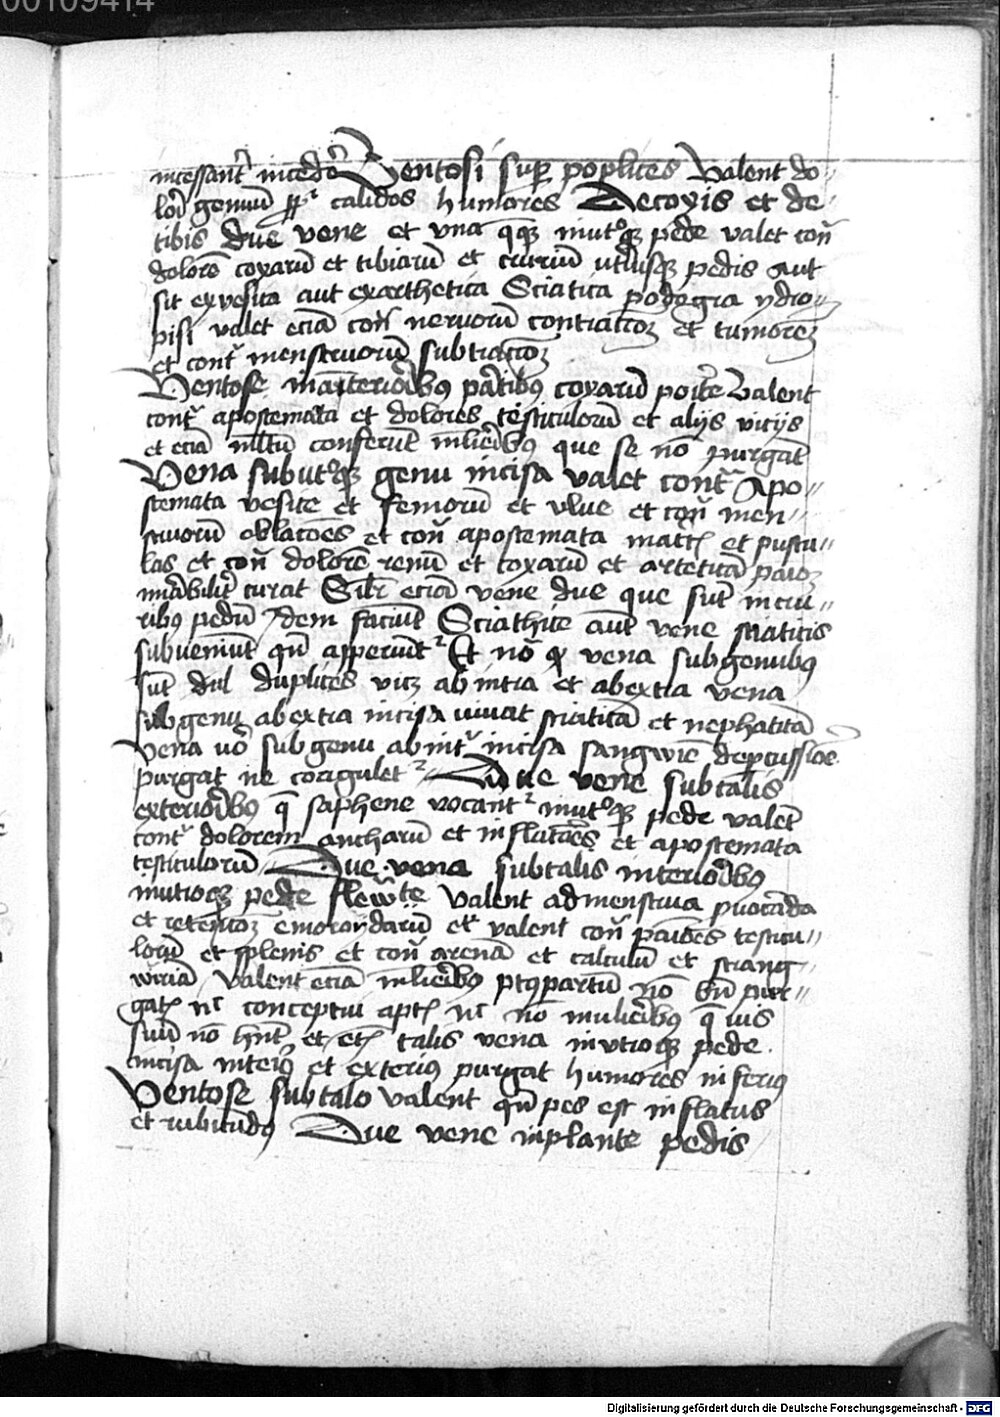 00109414
incessant͂ incedo͂ Ventosi sup poplices Valent do//
lor͂ genuū ꝓpt͛ calidos humores De coxis et de
tibis due vene et vna q̄ꝫ in utͦqꝫ pede valet con͂
dolorē coxarū et tibiarū et crurium utriusqꝫ pedis aut
sit ex vesica aut ex arthetica Sciatica podegra ydro//
pisi valet eciā con͂ nervorū contractōꝫ et tumorēꝫ
et cont͛ menstruorū subtractōꝫ
Ventose in anteriōibꝯ partibꝯ coxarū poite Valent
cont͛ apostemata et dolores testiculorū et alijs vicijs
et eciā multū conferūt mlieribꝯ que se nō purgāt
Vena sub utͦqꝫ genu incisa valet cont͛ Apo//
stemata vesice et femorū et vlue et con͂ men//
struorū oblacōes et con͂ apostemata matˢ et pustu//
las et con͂ dolorē renū et coxarū et arteticā
mirabilit͛ curat Silr eciam vene due que sūt in cru//
ribus pedū Idem faciūt Sciathice aūt vene sciaticis
subveniūt qn͂ apperiunt͛ Et nō qꝫ vena sub genubꝯ
sūt dul duplices vicꝫ ab intra et ab extra vena
sub genu ab extra incisa iuvat sciaticā et nephaticā
Vena vō sub genu ab int͛ incisa sangwinē depcussiōe
purgat ne coagulet͛ Due vene sub talis
exteriōibꝯ q̄ saphene vocant͛ in utͦqꝫ pede valent
cont͛ dolorem ancharū et inflacōes et apostemata
testiculorū Due vena sub talis interiōibꝯ
in utroqꝫ pede valent ad menstrua ꝓuocāda
et retencōꝫ emoroydarū et valent con͂ passiōes testicu//
lorū et splenis et con͂ arenā et calculū et strang//
wiriā Valent eciā mlieribꝯ post partū nō bn͂ pur//
gatˢ nc͛ conceptui aptˢ nc͛ nō mulieribꝯ q̄ ius
suū nō hn͂t et etˢ talis vena in utroqꝫ pede
incisa interiꝯ et exterius purgat humores inferiꝯ
Ventose sub talo valent qn͂ pes est inflatus
et rubicūdꝯ Due vene in plante pedis
Digitalisierung gefördert durch die Deutsche Forschungsgemeinschaft - DFG